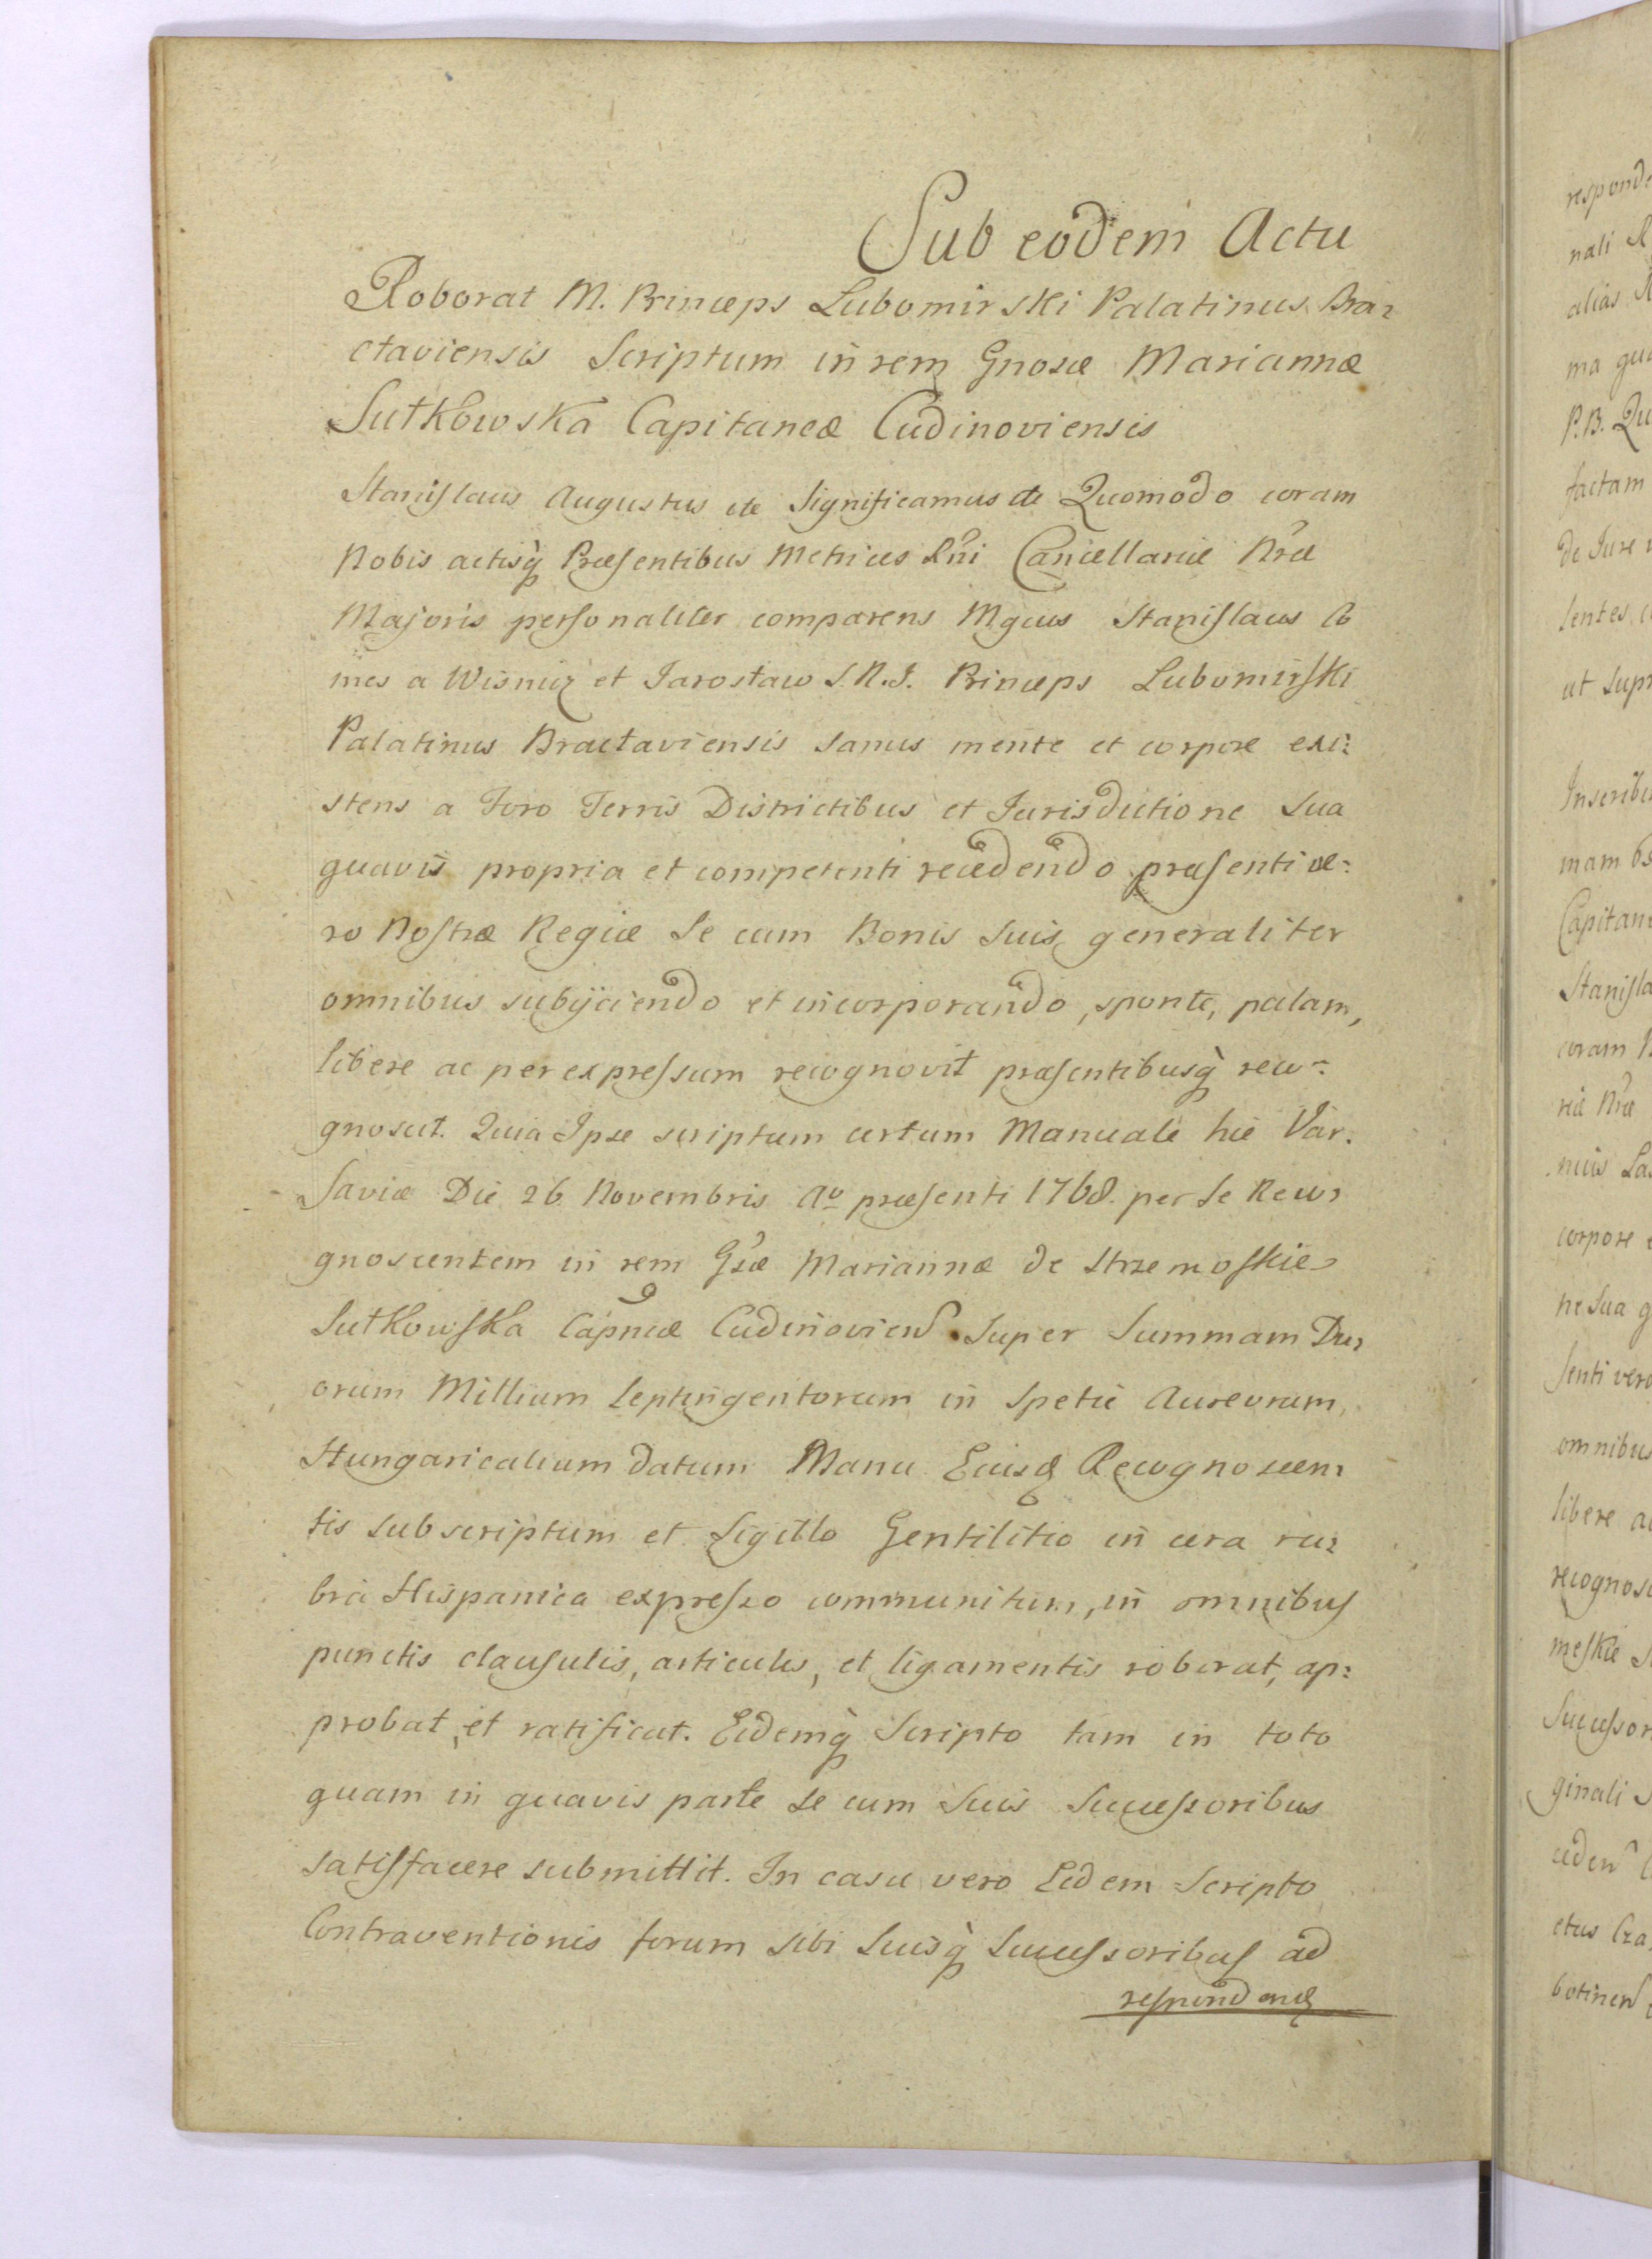 Sub eodem Actu
Roborat M. Princeps Lubomirski Palatinus Bra-
ctaviensis Scriptum in rem Gnosæ Mariannæ
Sutkowska Capitaneæ Cudinoviensis
Stanislaus Augustus etc Significamus etc Quomodo coram
Nobis actisq̀ Præsentibus Metrices Rñi Cancellariæ Nræ
Majoris personaliter comparens Mgcus Stanislaus Co
mes a Wisnicz et Jarosław S.R.J. Princeps Lubomirski
Palatinus Bractaviensis sanus mente et corpore exi:
stens a Foro Terris Districtibus et Jurisdictione sua
quavis propria et competenti recedendo præsenti ve:
ro Nostræ Regiæ se cum Bonis suis generaliter
omnibus subijciendo et incorporando, sponte, palam,
libere ac per expressum recognovit præsentibusq̀ reco:
gnoscit. Quia Ipse scriptum certum Manuale hic Var.
saviæ Die 26 Novembris Ao præsenti 1768. per se Reco-
gnoscentem in rem Gsæ Mariannæ de Strzemoskie
Sutkowska Capneæ Cudinovien Super Summam Du-
orum Millium Septingentorum in Spetie Aureorum,
Hungaricalium datum Manu Ejusdq Recognoscen-
tis subscriptum et Sigillo Gentilitio in cera ru-
bra Hispanica expresso communitum, in omnibus
punctis clausulis, articulis, et ligamentis roborat, ap:
probat, et ratificat. Eidemq̀ Scripto tam in toto
quam in quavis parte se cum Suis Successoribus
satisfacere submittit. In casu vero Eidem Scripto
Contraventionis forum sibi Suisq̀ Successoribus ad
respondendq
responde
nali
alias
ma
P.B.
factam
de Jure
sentes
ut supr
Inscribi
mam
Capitane
Stanisla
coram
riæ Nræ
corpore
ne sua
senti vero
omnibus
libere
recognosc
meskie
Successor
ginali
etus